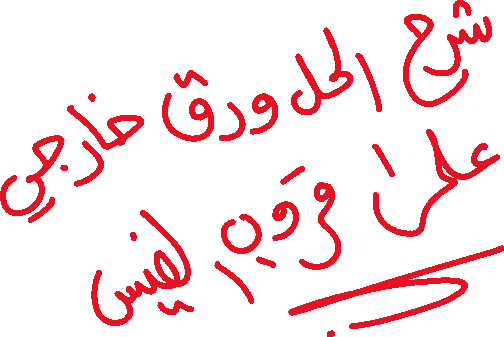 شرح الحل ورق خارجي
على قروب